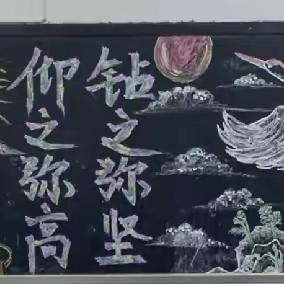 仰之弥高
钻之弥坚